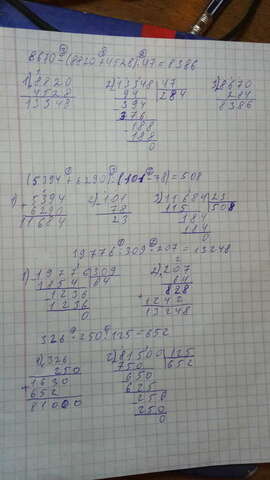 8670-(8820+4528):47=8386
1) 8820 2) 13348 47 3) 8670
4528 94 284 284
13348 394 8386
376
188
188
0
(5394+6290):(101-78)=508
1) 5394 2) 101 3) 11684 23
+6290 78 115 508
11684 23 184
184
0
19776:309·207=13248
1) 19776 309 2) 207
1854 64 64
1236 828
1236 +1242
0 13248
326·250:125=652
1) 326 2) 81500 125
250 750 652
+1630 650
652 625
81000 250
250
0